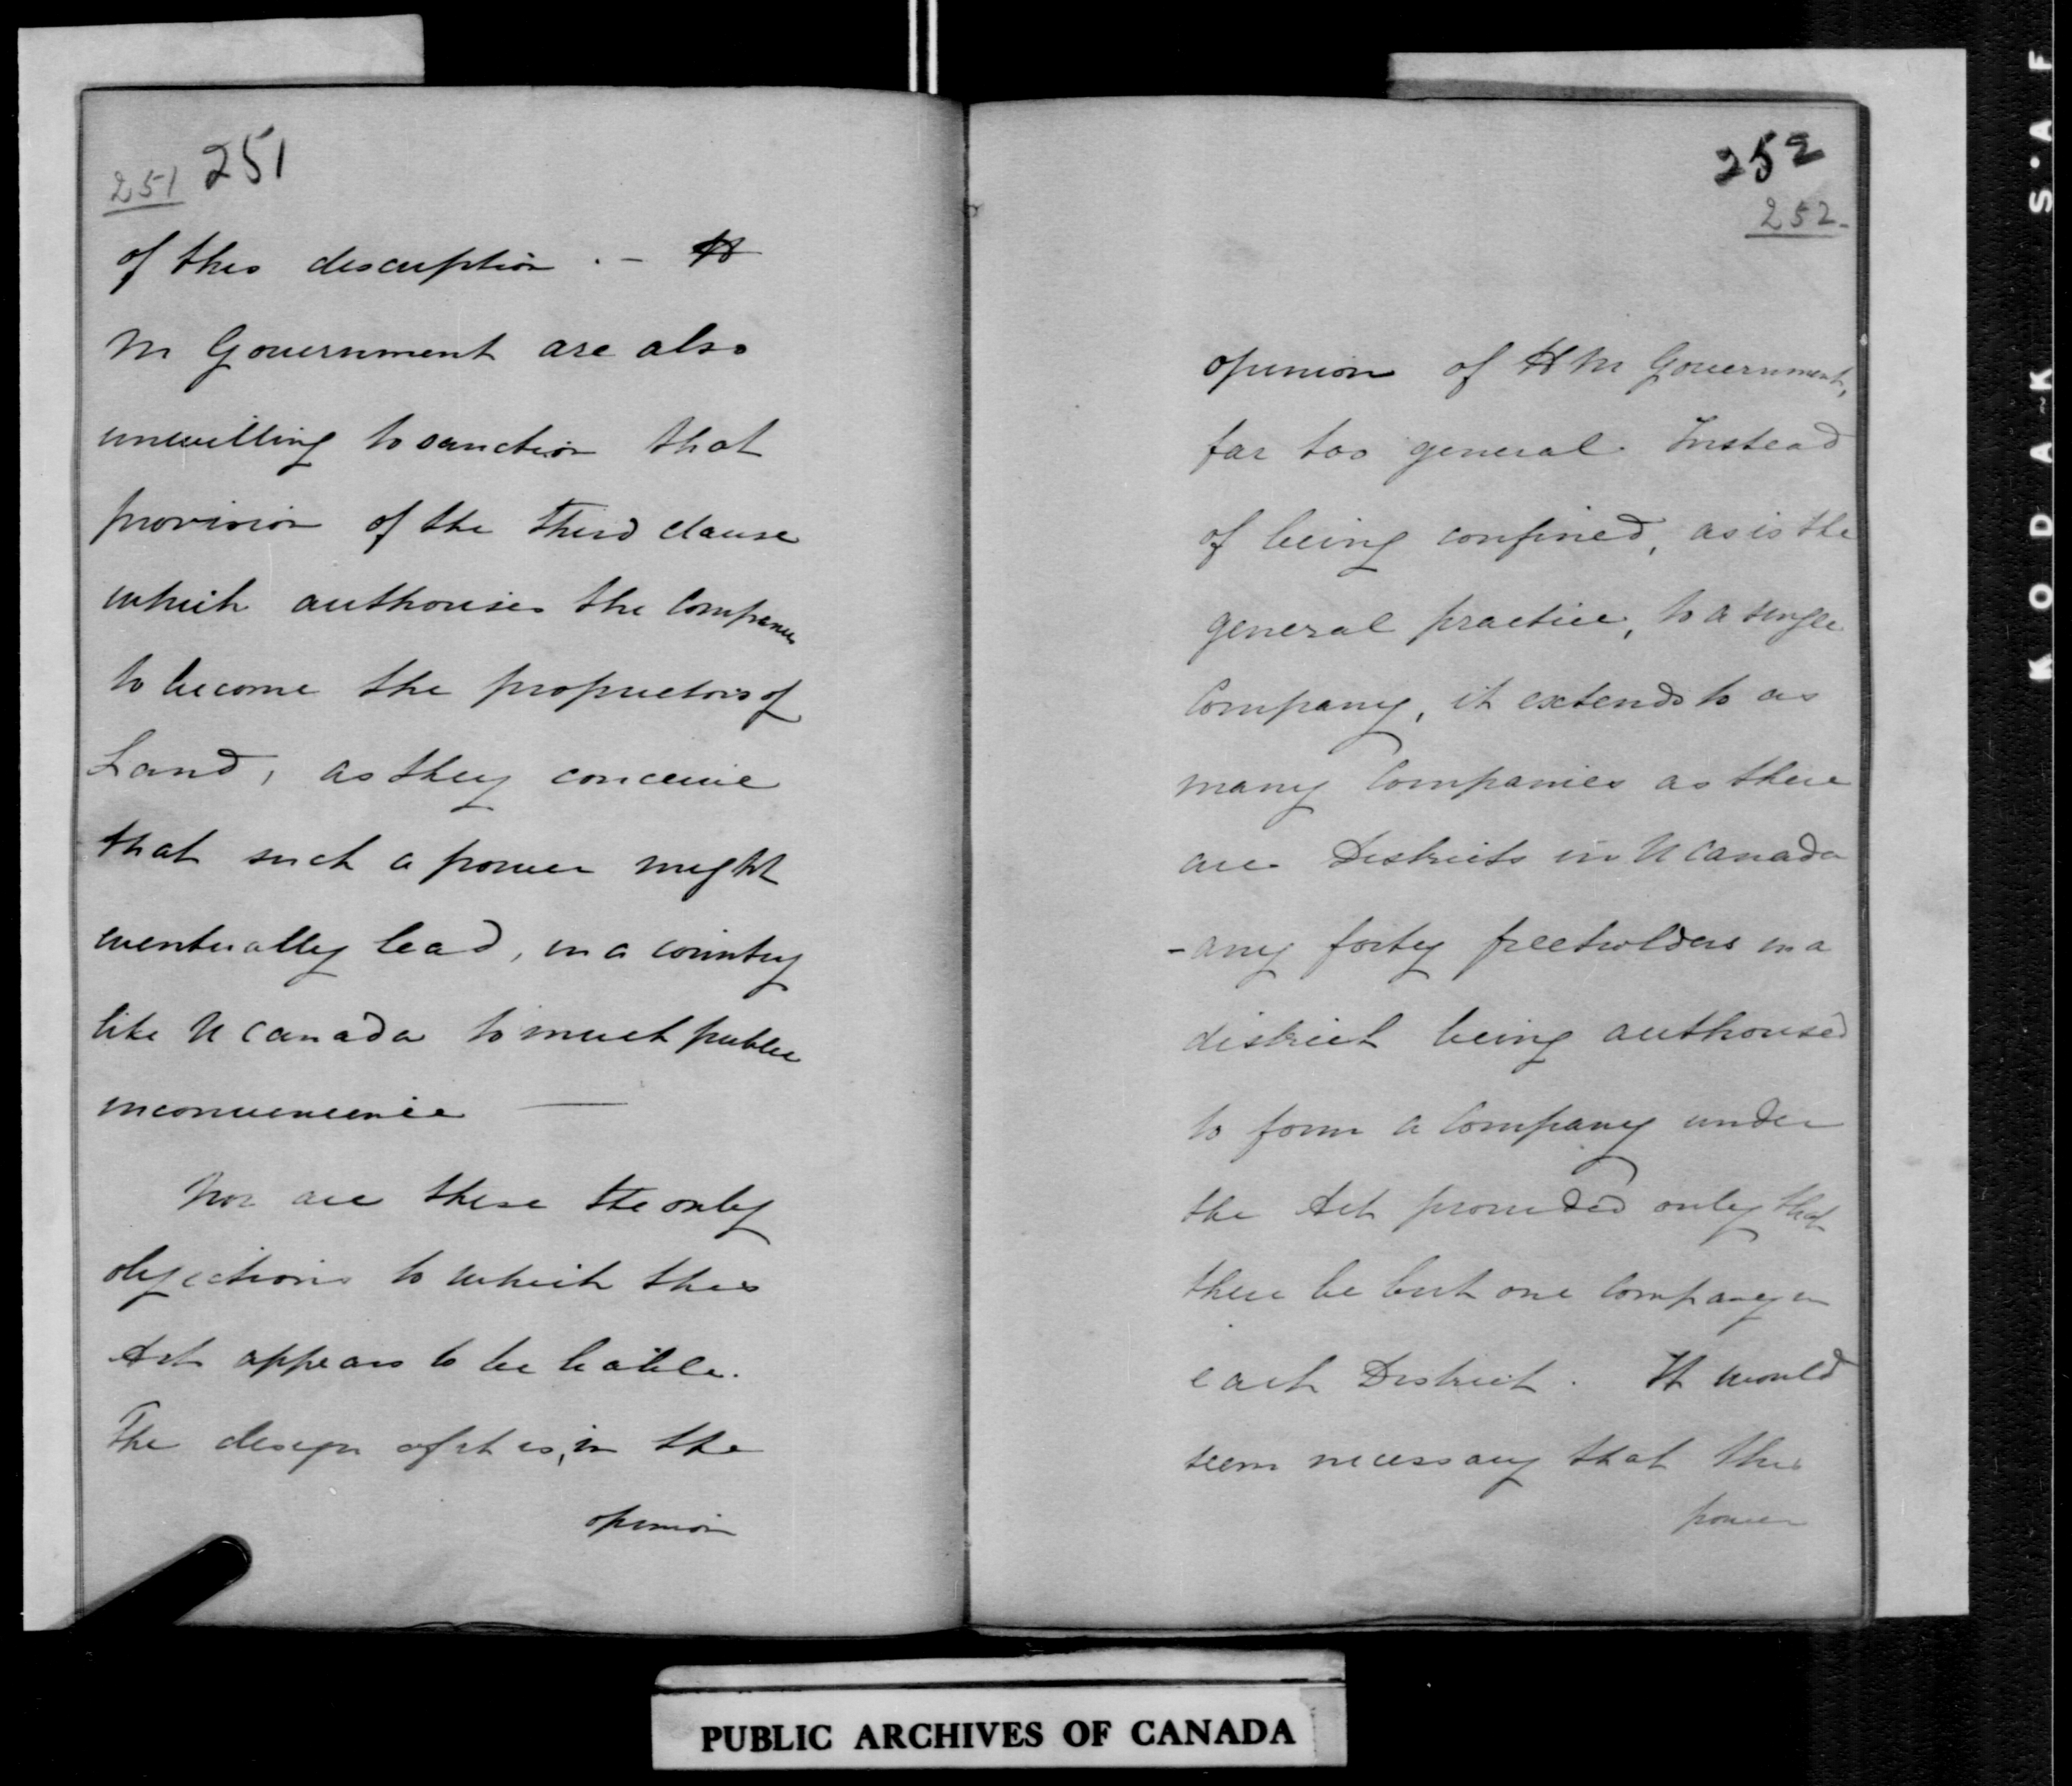 251 251
of this description . - H
M Government are also
unwilling to sanction that
provision of the third clause
which authorises the Companies
to become the proprietors of
Land, as they conceive
that such a power might
eventually lead, in a country
like U Canada to much public
inconvenience —
Nor are these the only
objections to which this
Act appears to be liable.
The design of it is, in the
opinion
252
252-
opinion of H M Government,
far too general. Instead
of being confined, as is the
general practice, to a single
Company, it extends to as
many Companies as there
are Districts in U Canada
- any forty freeholders in a
district being authorised
to form a Company under
the Act provided only that
there be but one Company in
each District. It would
seem necessary that the
power
PUBLIC ARCHIVES OF CANADA
KODAK S'AF